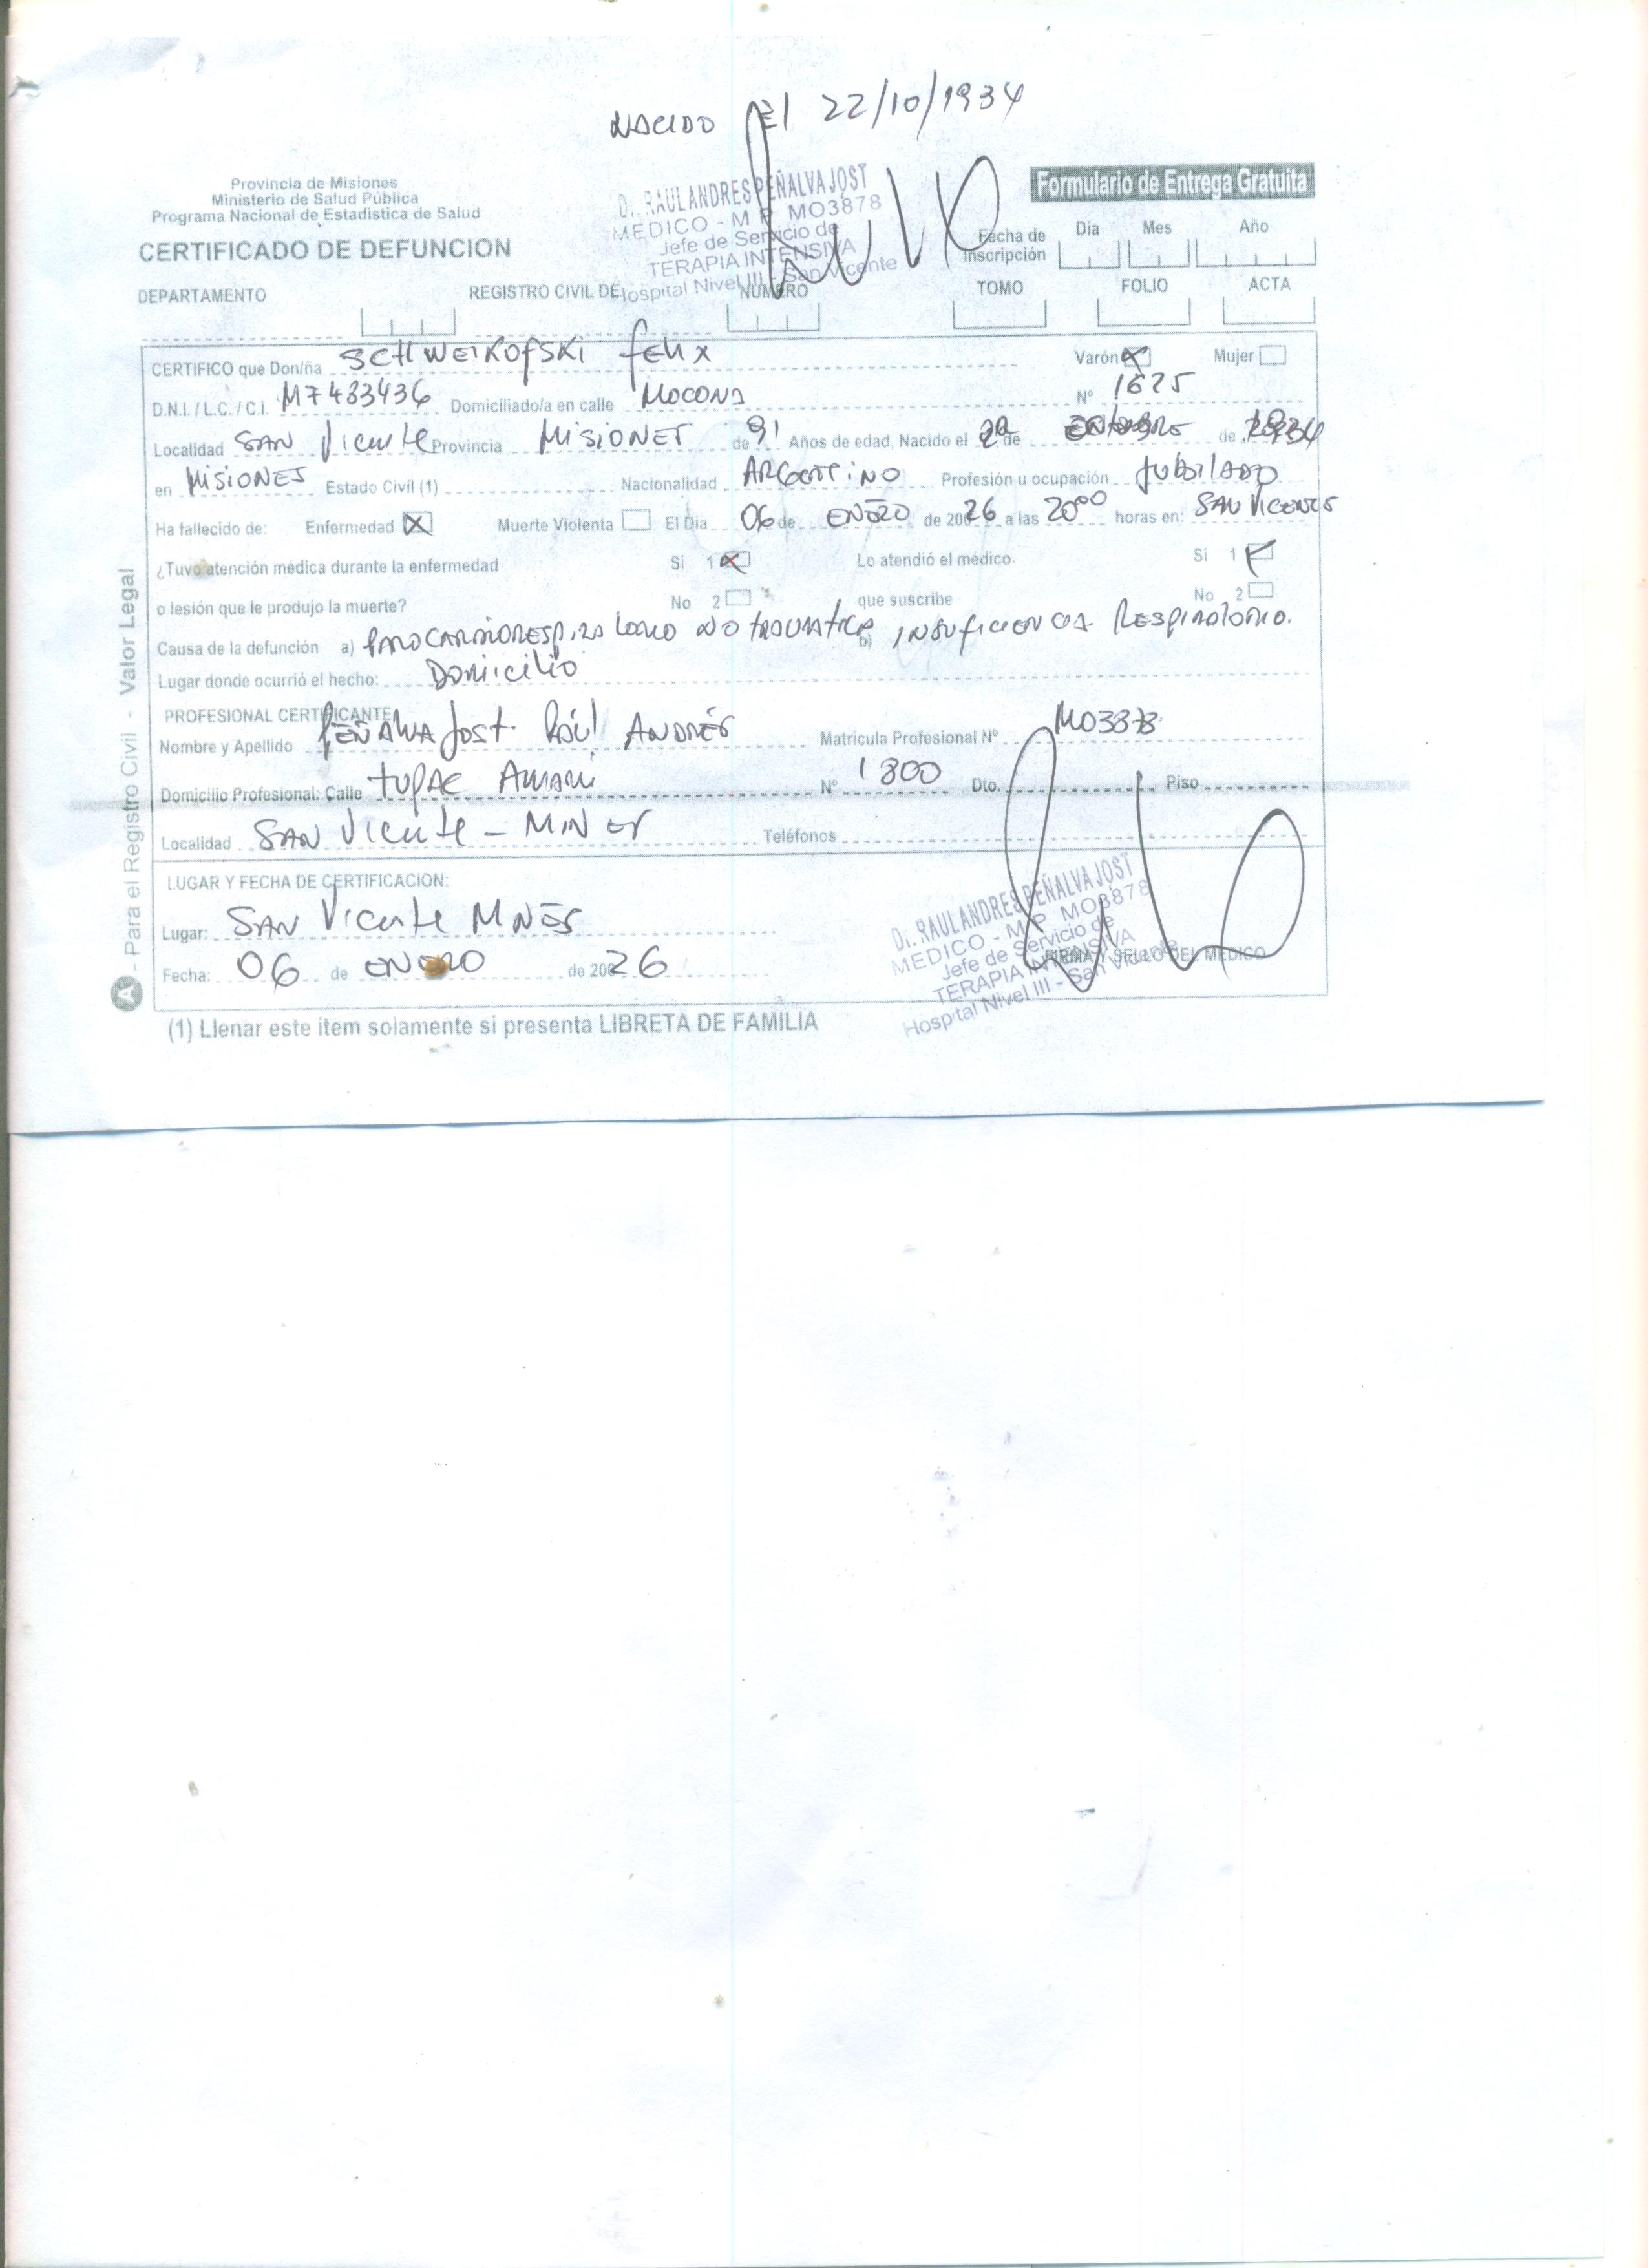 NACIDO El 22/10/1934
Provincia de Misiones
Ministerio de Salud Pública
Programa Nacional de Estadística de Salud
CERTIFICADO DE DEFUNCION
Dr. RAUL ANDRES PEÑALVA JOST
MEDICO - M.P. MO3878
Jefe de Servicio de
TERAPIA INTENSIVA
Hospital Nivel III - San Vicente
Formulario de Entrega Gratuita
Fecha de Inscripción Día Mes Año
DEPARTAMENTO REGISTRO CIVIL DE NÚMERO TOMO FOLIO ACTA
CERTIFICO que Don/ña SCHWEIKOFSKI FELIX Varón X Mujer
D.N.I. / L.C. / C.I. M7433436 Domiciliado/a en calle MOCONA Nº 1625
Localidad SAN Vicente Provincia MISIONES de 91 Años de edad, Nacido el 22 de de 1934
en MISIONES Estado Civíl (1) Nacionalidad ARGENTINO Profesión u ocupación JUBILADO
Ha fallecido de: Enfermedad X Muerte Violenta El Día 06 de ENERO de 200 26 a las 20:00 horas en: SAN VICENTE
¿Tuvo atención médica durante la enfermedad Si 1 X Lo atendió el médico. Si 1
o lesión que le produjo la muerte? No 2 que suscribe No 2
Causa de la defunción a) PAROCARDIORESPIRATORIO NO TRAUMATICO b) INSUFICIENCIA RESPIRATORIO.
Lugar donde ocurrió el hecho: DOMICILIO
PROFESIONAL CERTIFICANTE
Nombre y Apellido PEÑALVA Jost Raúl ANDRÉS Matricula Profesional Nº MO3878
Domicilio Profesional: Calle TUPAC AMARU Nº 1800 Dto. Piso
Localidad SAN Vicente - MNES Teléfonos
LUGAR Y FECHA DE CERTIFICACION:
Lugar: SAN Vicente MNES
Fecha: 06 de ENERO de 200 26
Dr. RAUL ANDRES PEÑALVA JOST
MEDICO - M.P. MO3878
Jefe de Servicio de
TERAPIA INTENSIVA
Hospital Nivel III - San Vicente
FIRMA Y SELLO DEL MEDICO
(1) Llenar este ítem solamente si presenta LIBRETA DE FAMILIA
A - Para el Registro Civil - Valor Legal